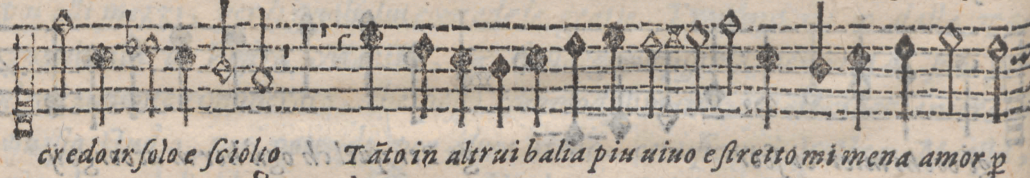 credo ir ſolo e ſciolto T ãto in altrui balia piu uiuo e ſtretto mi mena amor ꝑ